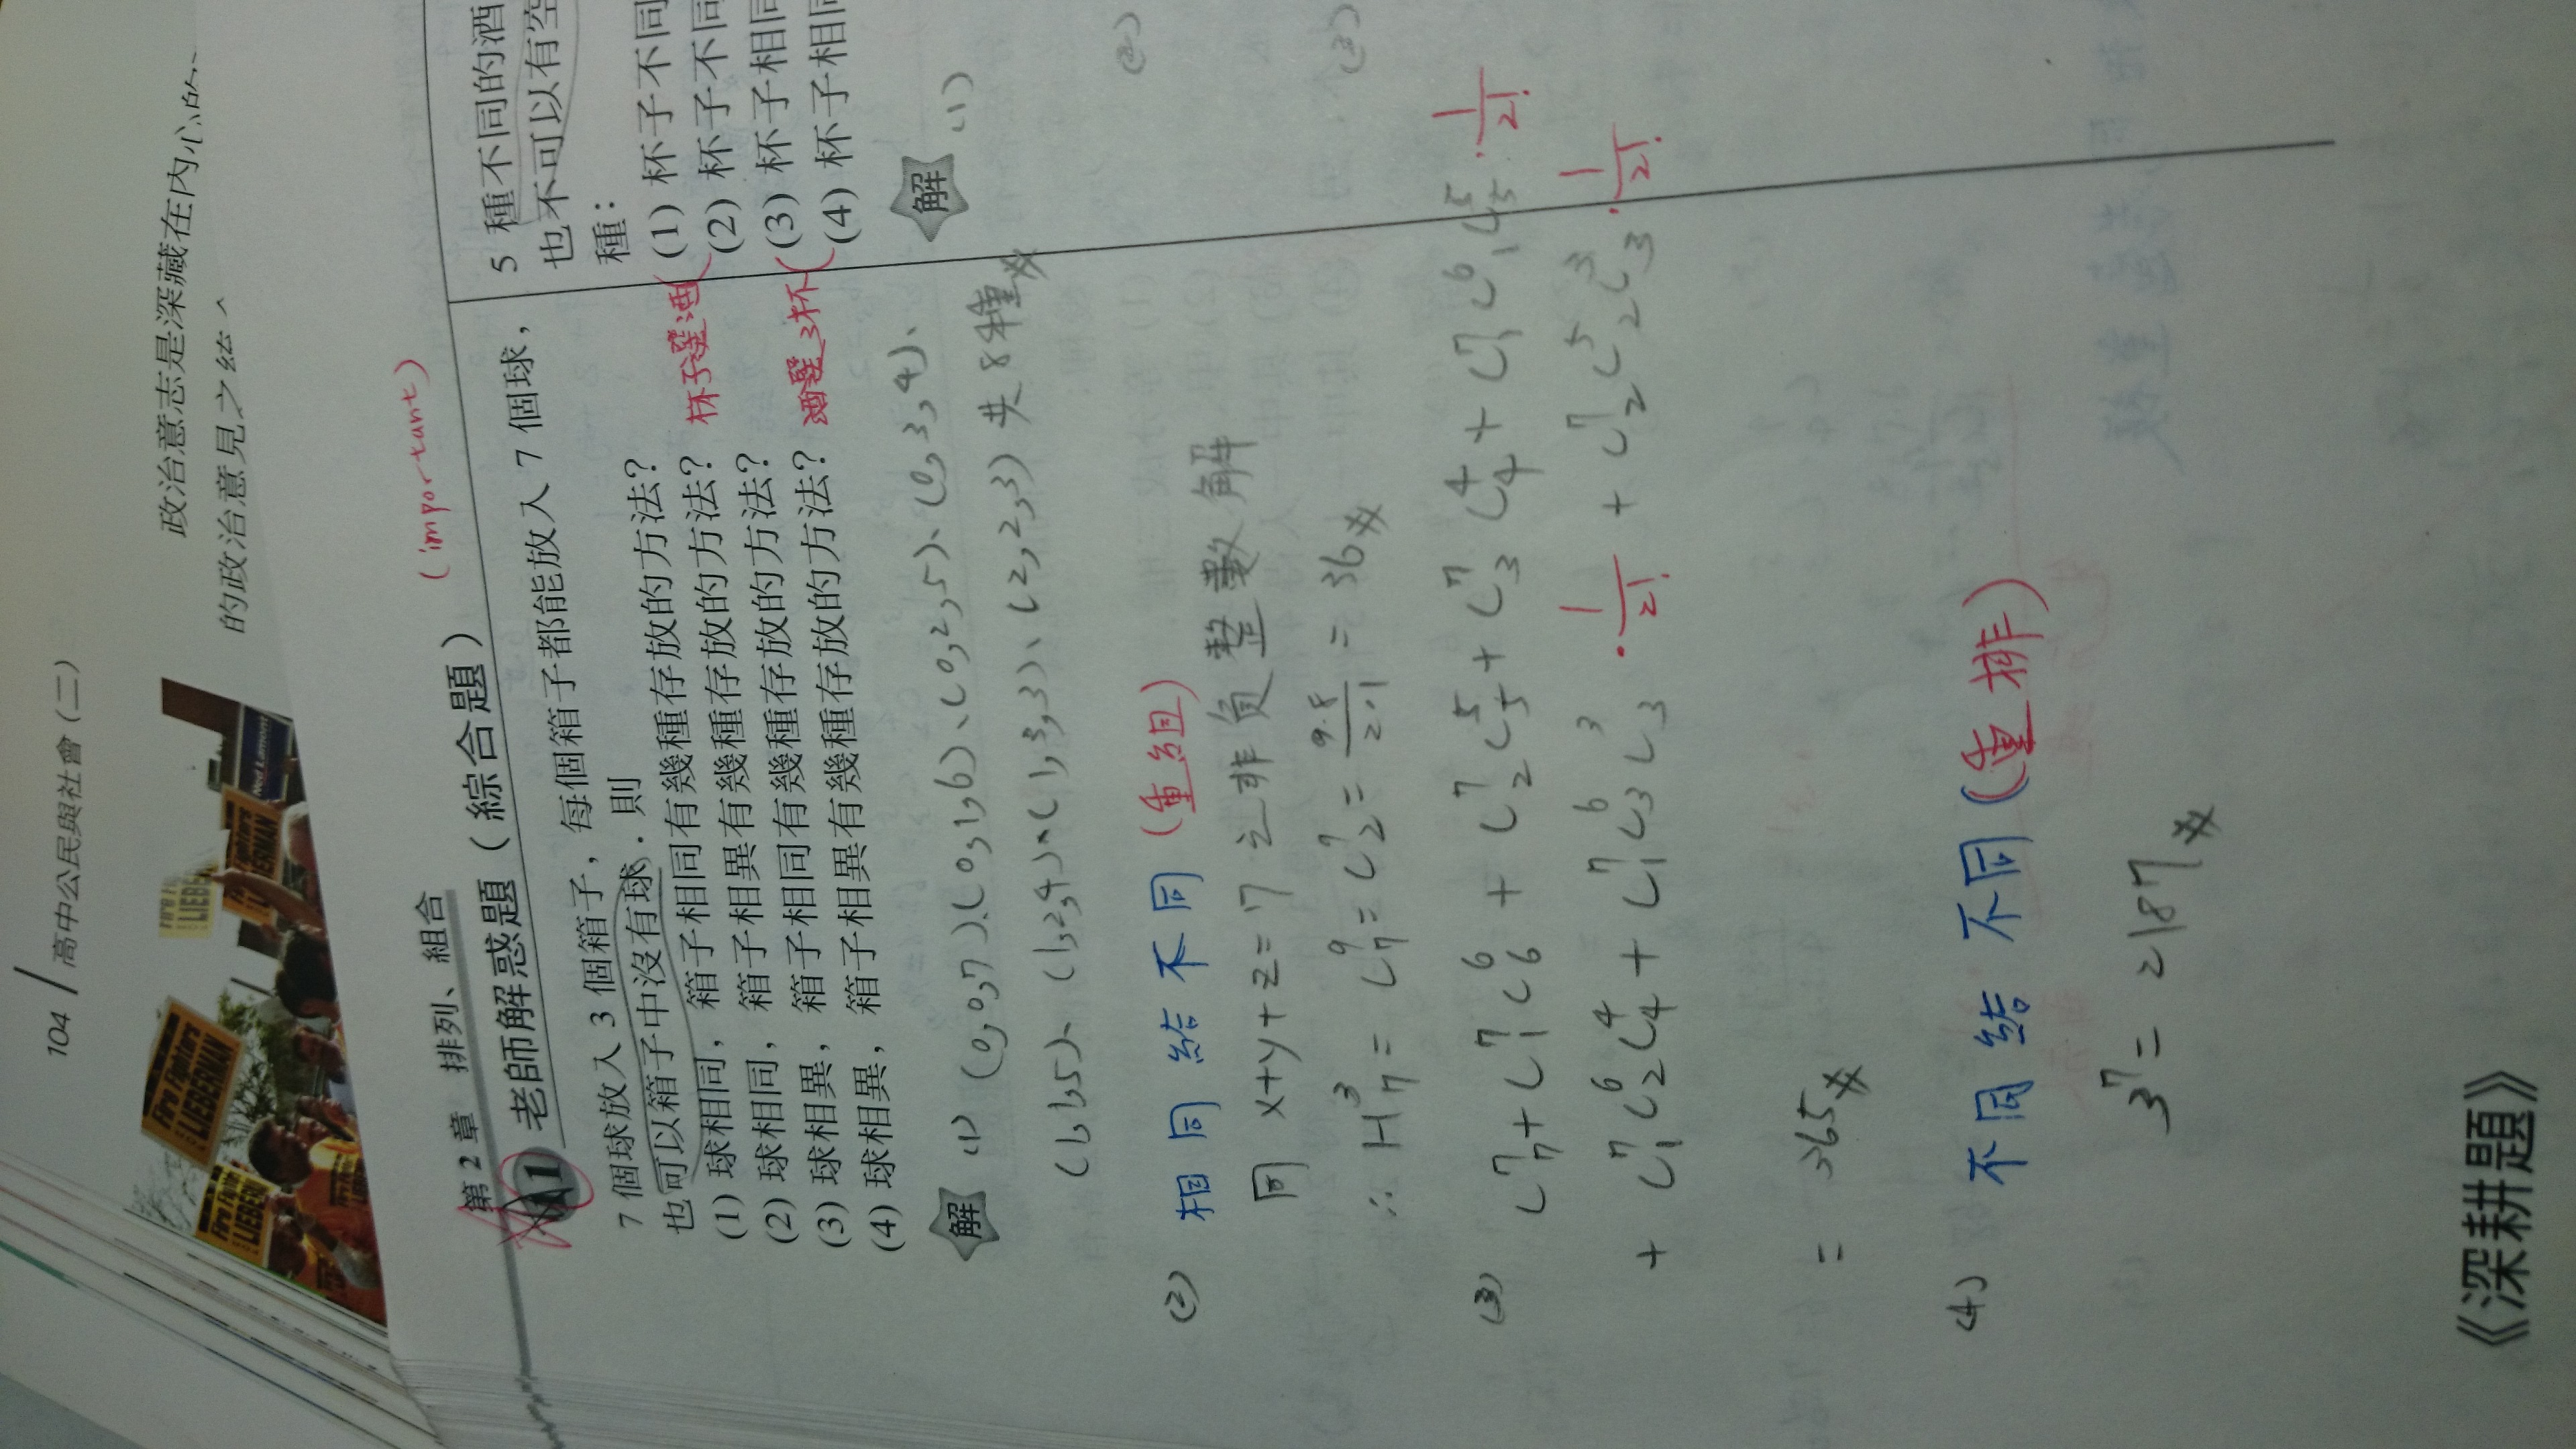 104 / 高中公民與社會(二)
政治意志是深藏在內心的
的政治意見之
Fire Fighters
LIEBERMAN
LIEBE
LIEBERMAN
Ned Lamont
第 2 章 排列、組合
(important)
1 老師解惑題(綜合題)
7 個球放入 3 個箱子，每個箱子都能放入 7 個球，
也可以箱子中沒有球．則
(1) 球相同，箱子相同有幾種存放的方法？
(2) 球相同，箱子相異有幾種存放的方法？
(3) 球相異，箱子相同有幾種存放的方法？
(4) 球相異，箱子相異有幾種存放的方法？
杯子選酒
酒選3杯
解 (1) (0,0,7)、(0,1,6)、(0,2,5)、(0,3,4)、
(1,1,5)、(1,2,4)、(1,3,3)、(2,2,3) 共8種
(2) 相同給不同 (重組)
同 x+y+z=7 之非負整數解
∴ H³₇ = C⁹₇ = C⁹₂ = 9·8/2·1 = 36
(3) C⁷₇ + C⁷₁C⁶₆ + C⁷₂C⁵₅ + C⁷₃C⁴₄ + C⁷₁C⁶₁C⁵₅ · 1/2!
+ C⁷₁C⁶₂C⁴₄ + C⁷₁C⁶₃C³₃ · 1/2! + C⁷₂C⁵₂C³₃ · 1/2!
= 365
(4) 不同給不同 (重排)
3⁷ = 2187
《深耕題》
5 種不同的酒
也不可以有空
種：
(1) 杯子不同
(2) 杯子不同
(3) 杯子相同
(4) 杯子相同
解 (1)
(2)
(3)